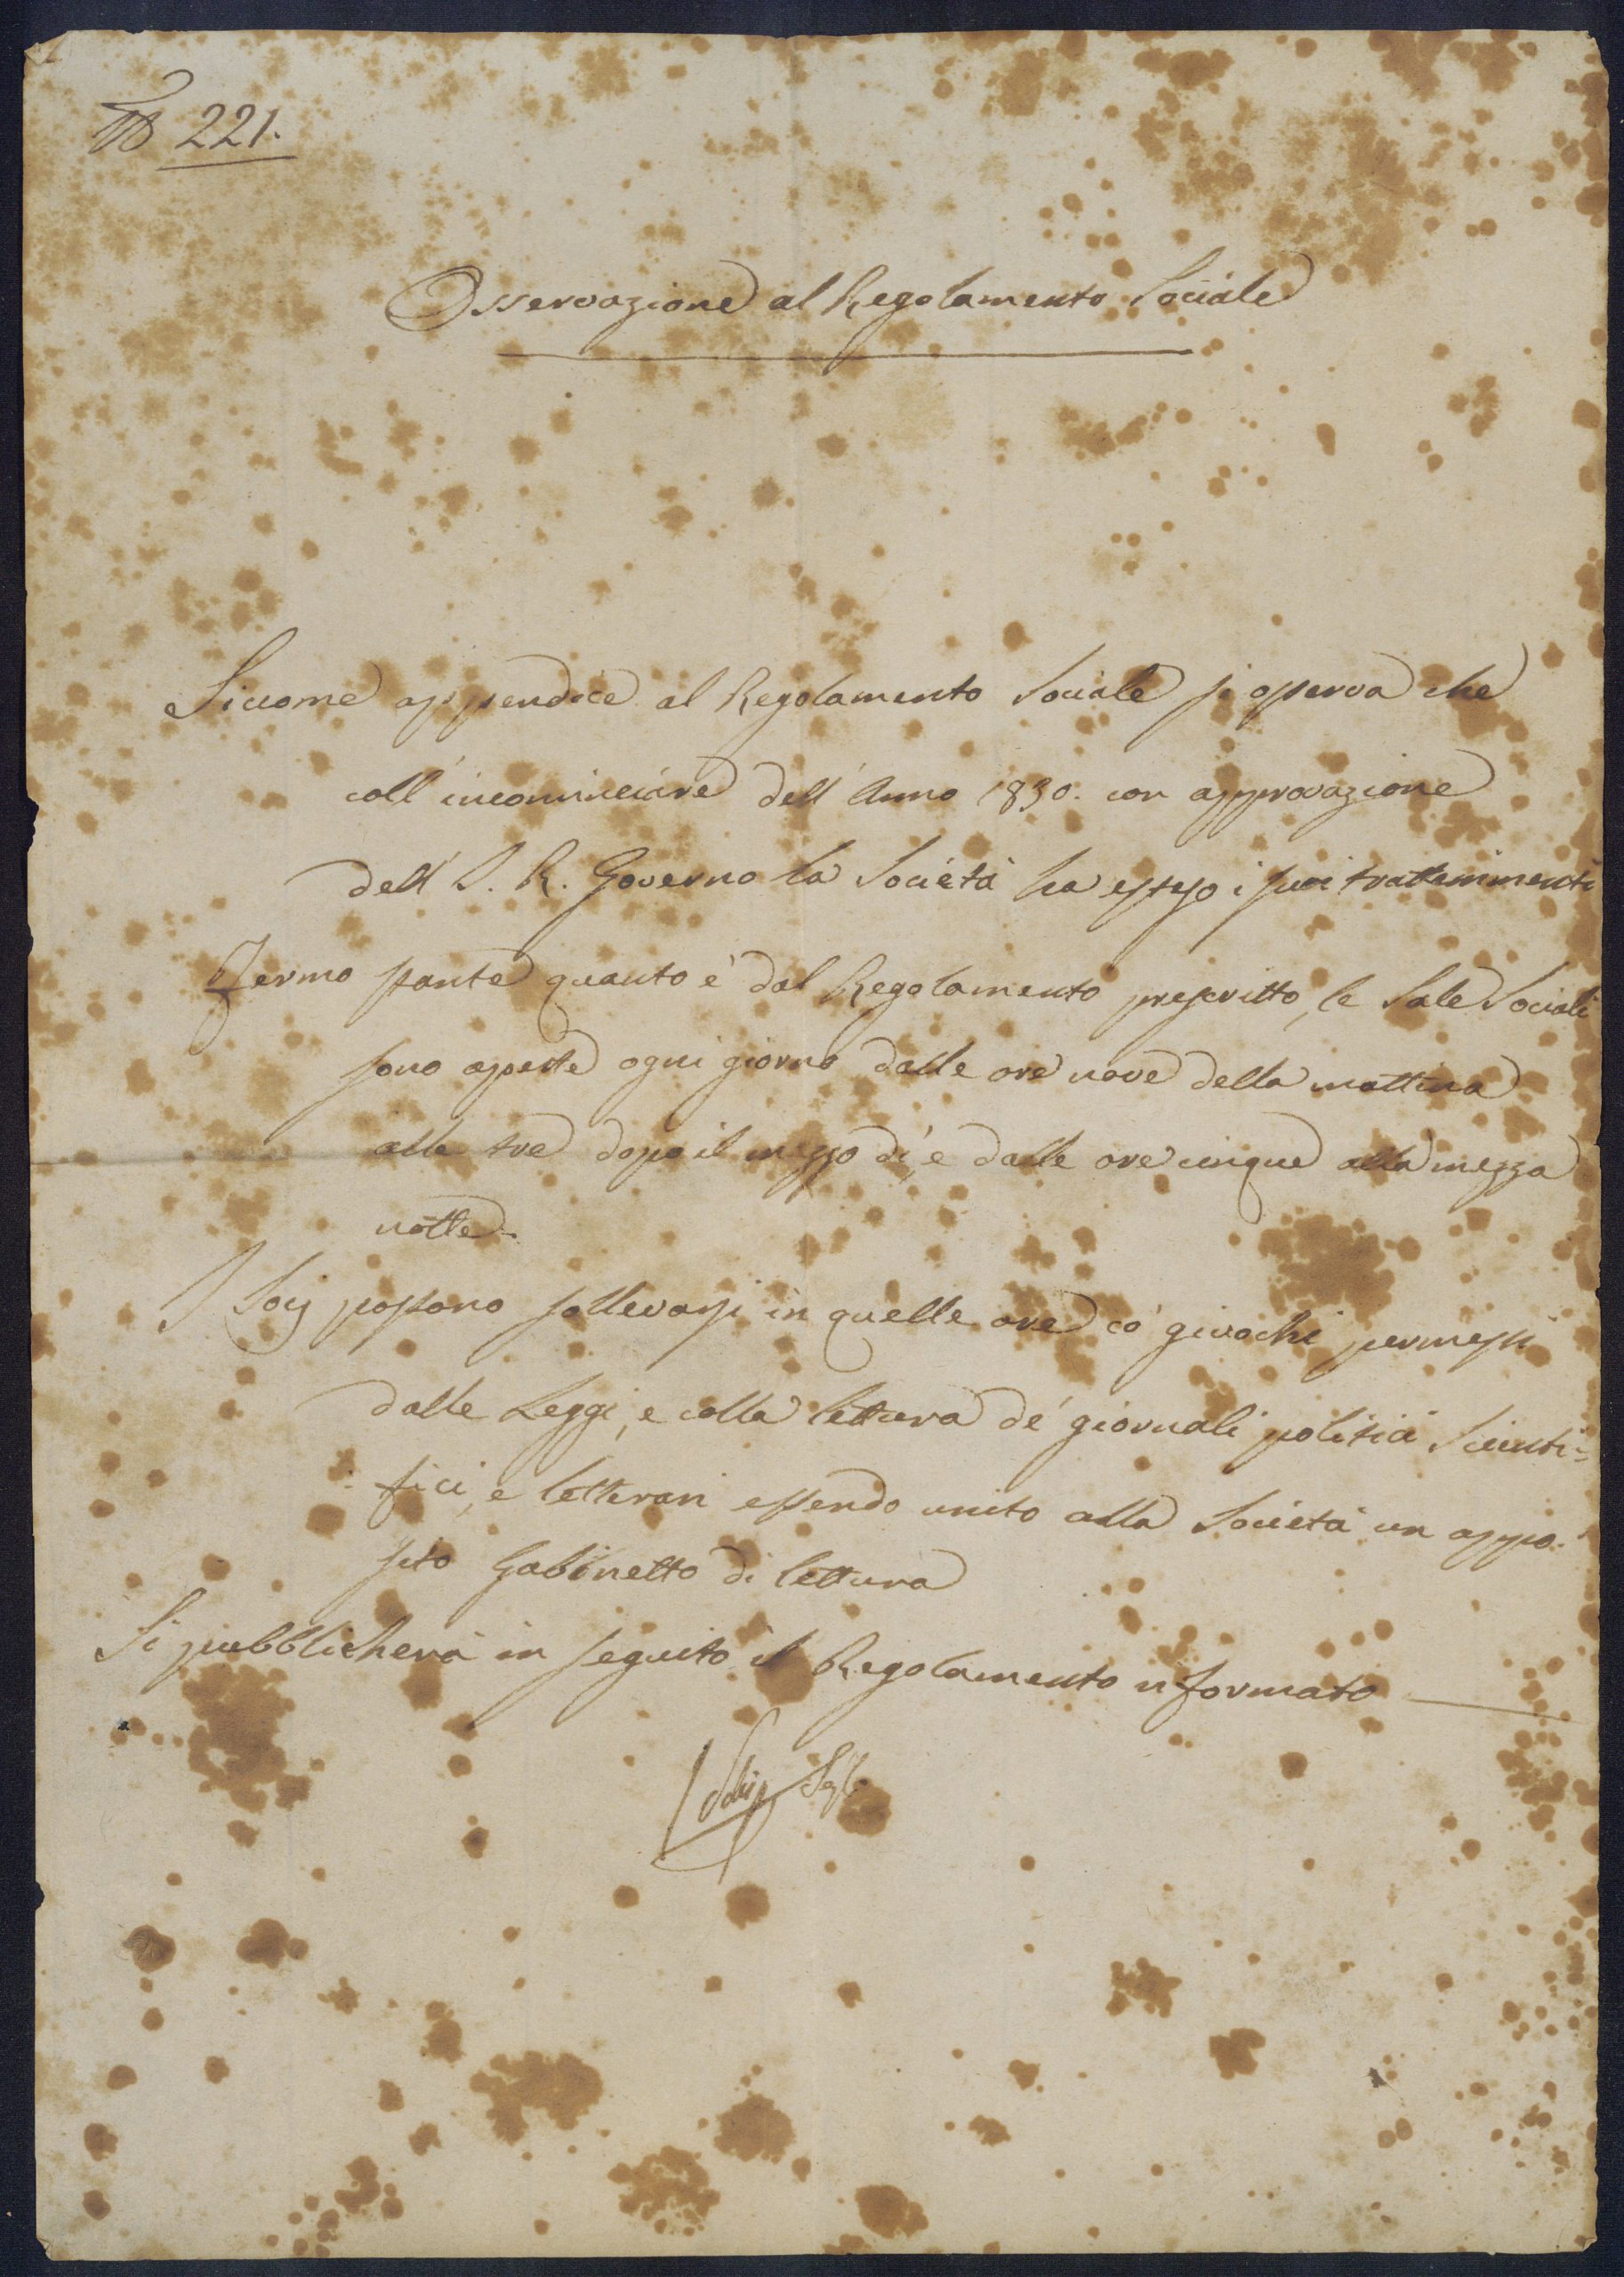 221.
Osservazione al Regolamento Sociale
Siccome appendice al Regolamento Sociale si osserva che
coll' incominciare dell' Anno 1830. con approvazione
dell' I. R. Governo la Società ha esteso i suoi trattenimenti
Fermo stante quanto è dal Regolamento prescritto, le Sale Sociali
sono aperte ogni giorno dalle ore nove della mattina
alle tre dopo il mezzo dì, e dalle ore cinque alla mezza
notte.
I Socj possono sollevarsi in quelle ore co' giuochi permessi
dalle Leggi, e colla lettura de' giornali politici Scienti-
fici, e letterari essendo unito alla Società un appo-
sito Gabinetto di lettura
Si pubblicherà in seguito il Regolamento riformato